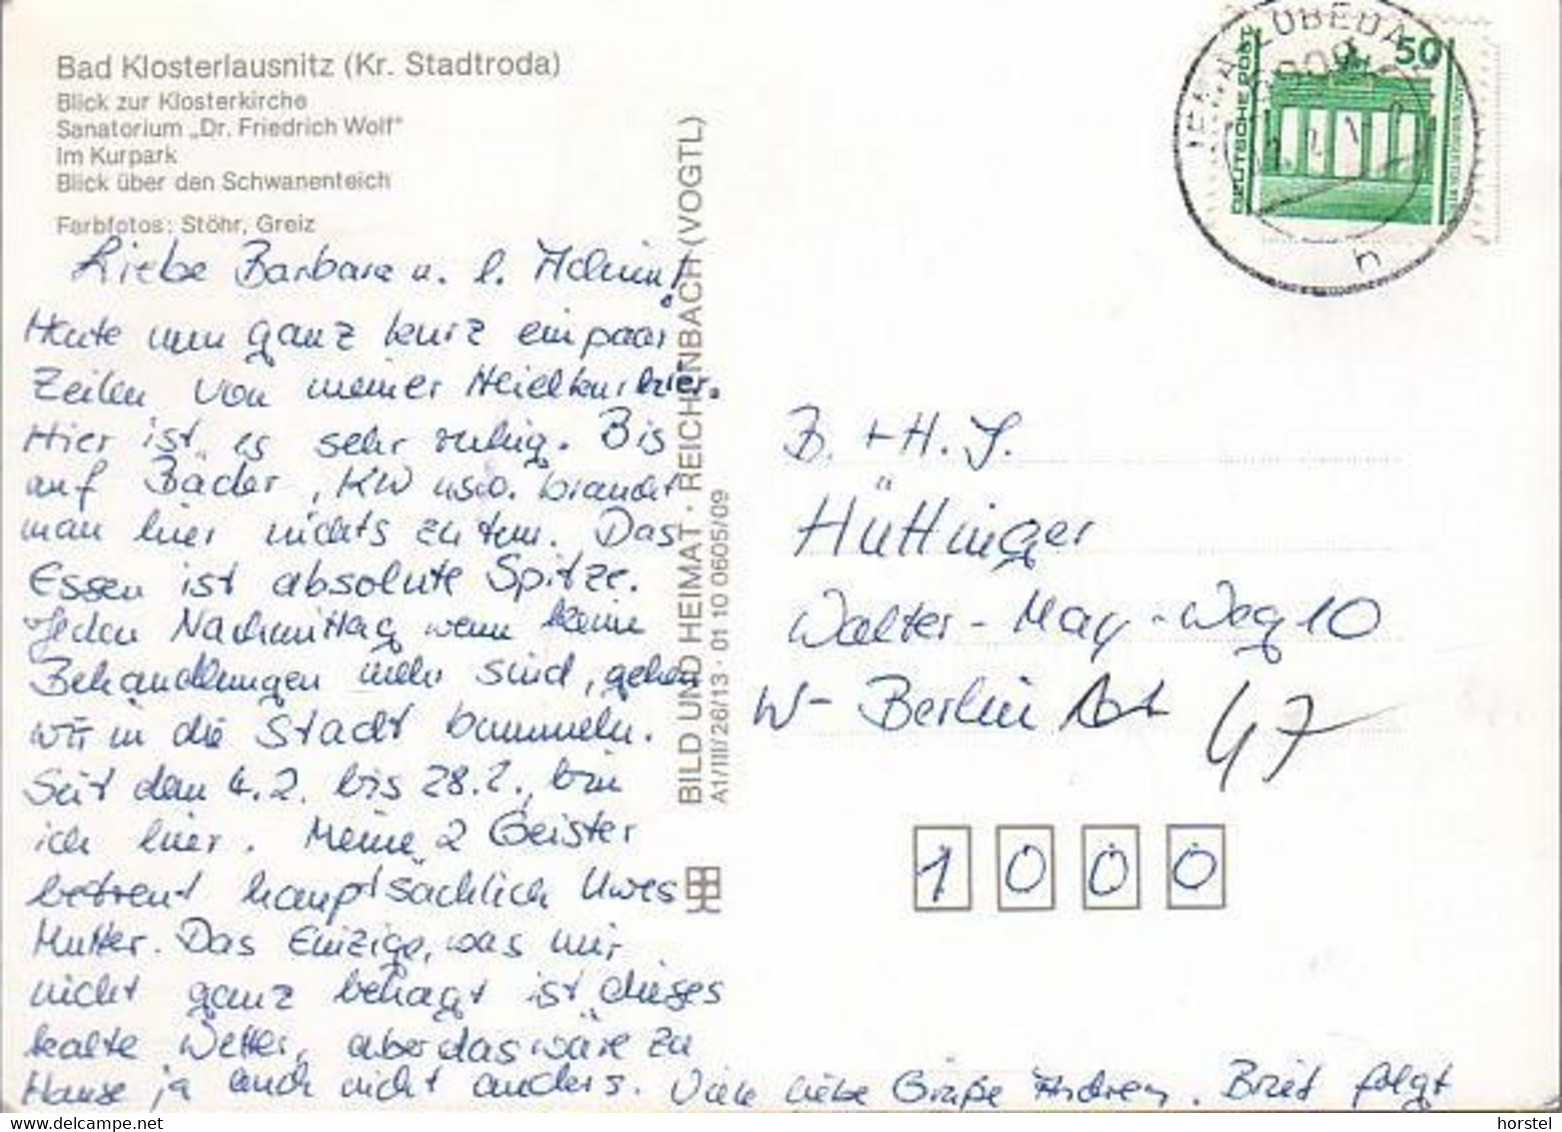 Bad Klosterlausnitz (Kr. Stadtroda)
Blick zur Klosterkirche
Sanatorium „Dr. Friedrich Wolf"
Im Kurpark
Blick über den Schwanenteich
Farbfotos: Stöhr, Greiz
Liebe Barbara u. l. Achim!
Heute nun ganz kurz ein paar
Zeilen von meiner Heilkur hier.
Hier ist es sehr ruhig. Bis
auf Bäder, KW usw. braucht
man hier nichts zu tun. Das
Essen ist absolute Spitze.
Jeden Nachmittag wenn keine
Behandlungen mehr sind, gehen
wir in die Stadt bummeln.
Seit dem 4.2. bis 28.2. bin
ich hier. Meine 2 Geister
betreut hauptsächlich Uwes
Mutter. Das Einzige, was mir
nicht ganz behagt ist dieses
kalte Wetter, aber das wäre zu
Hause ja auch nicht anders. Viele liebe Grüße Andrea. Brief folgt
BILD UND HEIMAT · REICHENBACH (VOGTL)
A1/III/26/13 · 01 10 0605/09
JENA LOBEDA
h
50
DEUTSCHE POST
B. + H. J.
Hüttinger
Walter-May-Weg 10
W- Berlin 47
1 0 0 0
horstel